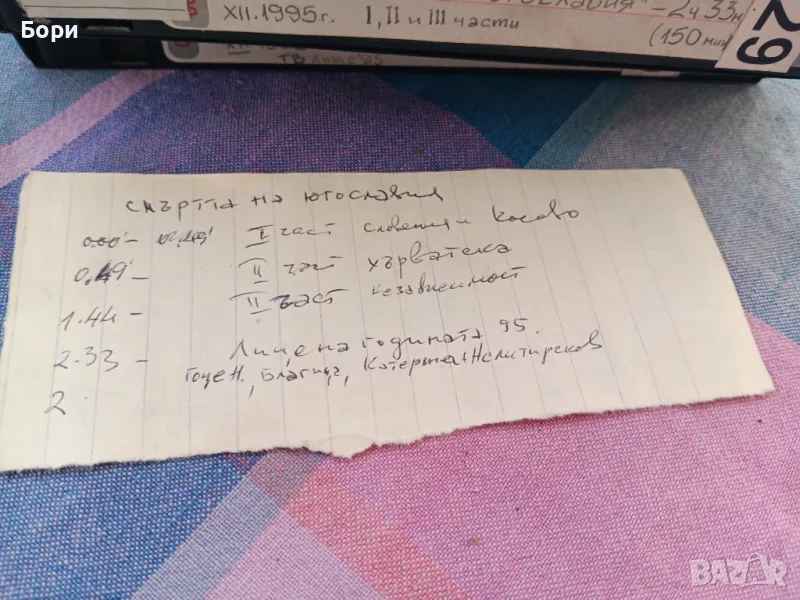 Бори
XII.1995г. I, II и III части
- 2ч 33м
(150 мин)
29
СМЪРТТА НА ЮГОСЛАВИЯ
0.00 - 0.49 I част Словения и Косово
0.49 - II част Хърватска
1.44 - III част Независимост
2.33 - Лице на годината 95.
Гоце Н., , Катерина и Нели
2
BAZAR